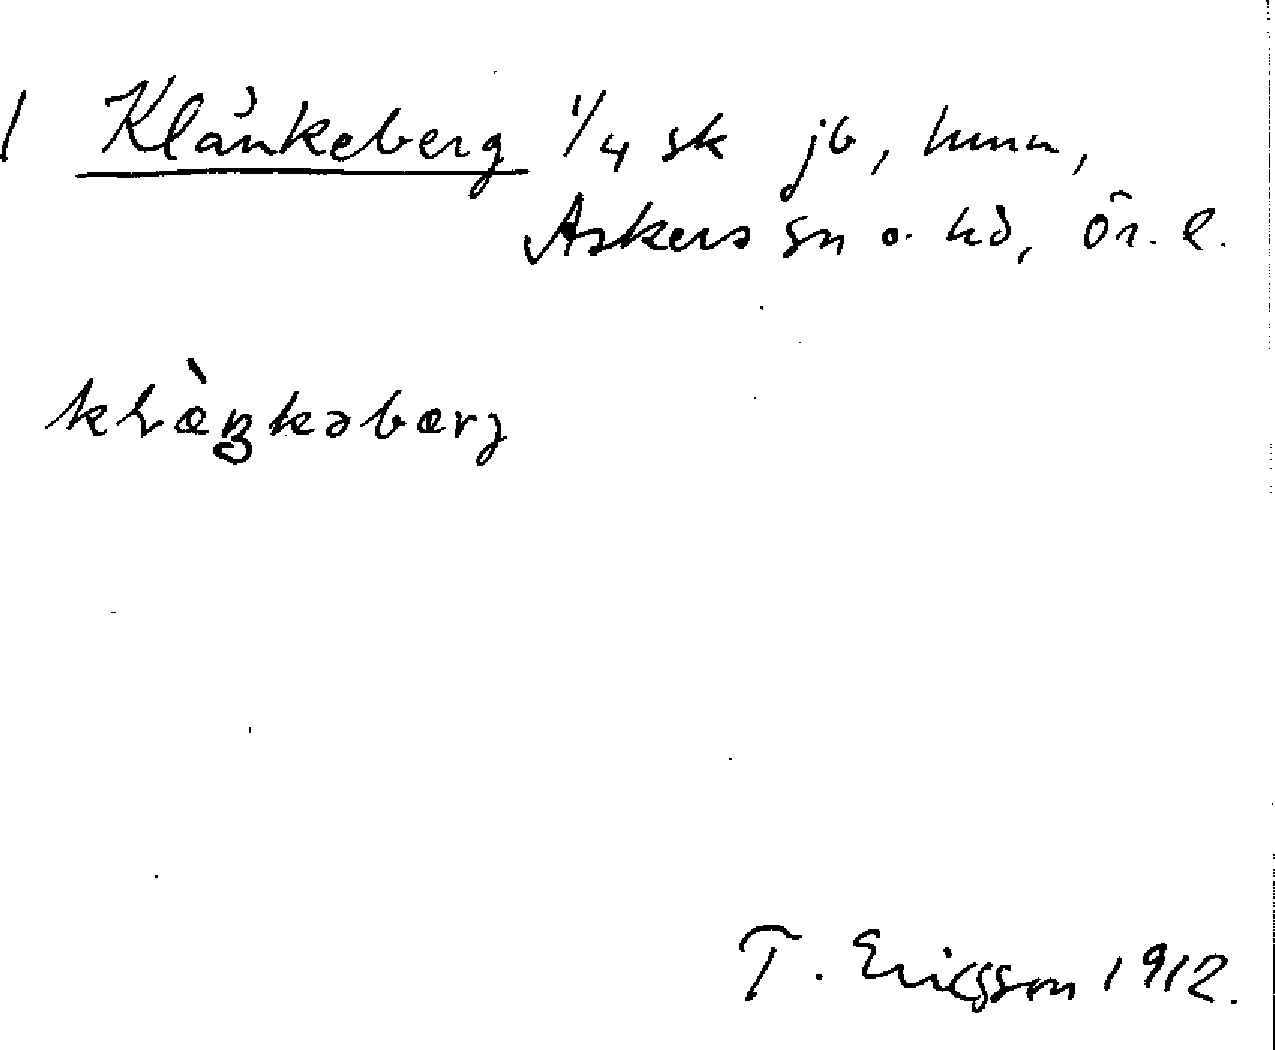 / Klänkeberg 1/4 sk jb, hmn,
Askers sn o. hd, Ör. l.
kḷæ̀ŋkəbærj
T. Ericsson 1912.